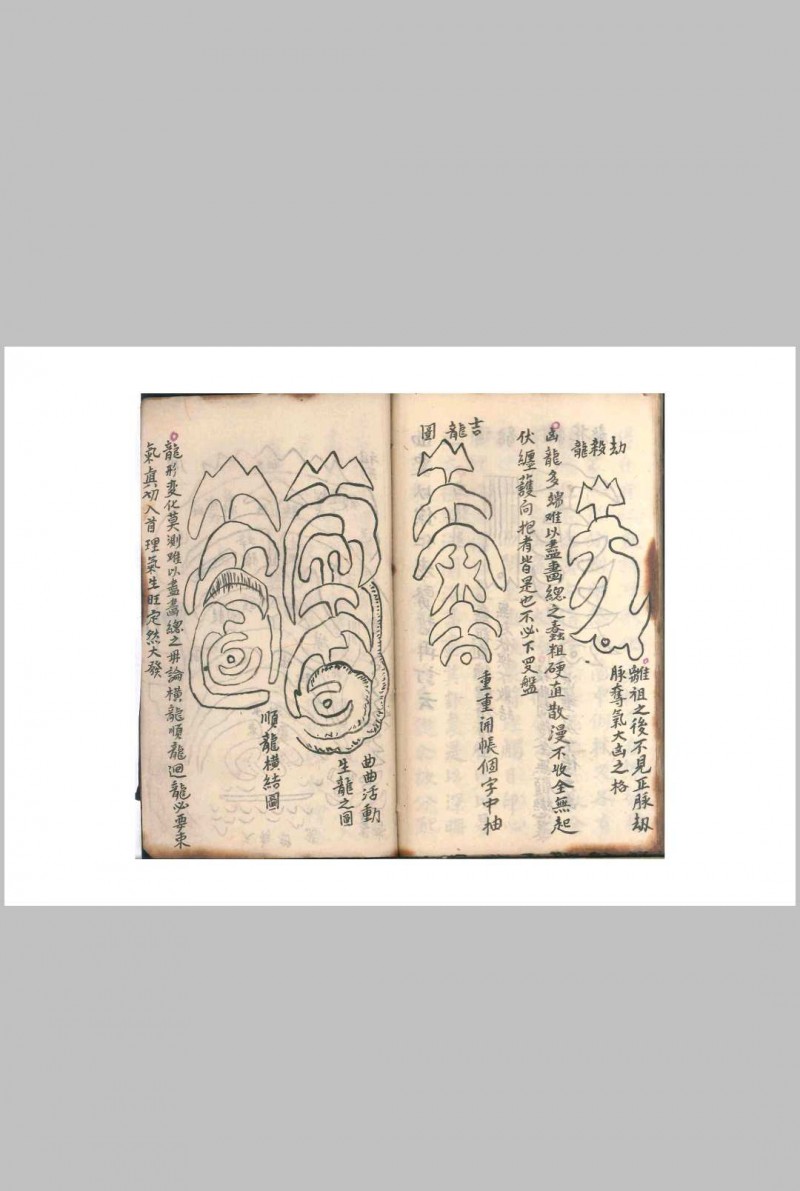 劫殺龍
離祖之後不見正脉劫
脉奪氣大凶之格
凶龍多端难以盡畫總之蠢粗硬直散漫不收全無起
伏纏護向抱者皆是也不必下罗盤
吉龍圖
重重開帳個字中抽
曲曲活動
生龍之圖
順龍橫結圖
龍形变化莫测难以盡畫總之毋論橫龍順龍迴龍必要束
氣真切入首理氣生旺定然大發